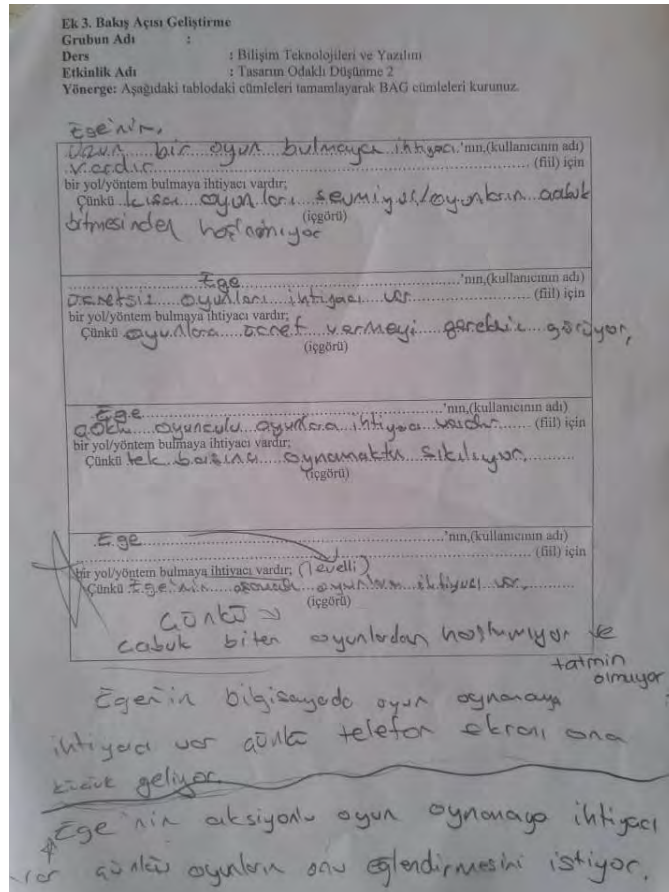 Ek 3. Bakış Açısı Geliştirme
Grubun Adı :
Ders : Bilişim Teknolojileri ve Yazılım
Etkinlik Adı : Tasarım Odaklı Düşünme 2
Yönerge: Aşağıdaki tablodaki cümleleri tamamlayarak BAG cümleleri kurunuz.
Ege'nin,
uzun bir oyun bulmaya ihtiyacı 'nın,(kullanıcının adı)
vardır (fiil) için
bir yol/yöntem bulmaya ihtiyacı vardır;
Çünkü kısa oyunları sevmiyor/oyunların çabuk
(içgörü)
bitmesinden hoşlanmıyor
Ege 'nın,(kullanıcının adı)
ücretsiz oyunları ihtiyacı var (fiil) için
bir yol/yöntem bulmaya ihtiyacı vardır;
Çünkü oyunlara ücret vermeyi gereksiz görüyor,
(içgörü)
Ege 'nın,(kullanıcının adı)
çok oyunculu oyunlara ihtiyacı vardır (fiil) için
bir yol/yöntem bulmaya ihtiyacı vardır;
Çünkü tek başına oynamaktan sıkılıyor,
(içgörü)
Ege 'nın,(kullanıcının adı)
(fiil) için
bir yol/yöntem bulmaya ihtiyacı vardır; (levelli)
Çünkü Ege'nin oyunlara ihtiyacı var,
(içgörü)
çünkü
çabuk biten oyunlardan hoşlanmıyor ve
tatmin
olmuyor
Ege'nin bilgisayada oyun oynamaya
ihtiyacı var çünkü telefon ekranı ona
küçük geliyor.
Ege'nin aksiyonlu oyun oynamaya ihtiyacı
var çünkü oyunların onu eğlendirmesini istiyor.